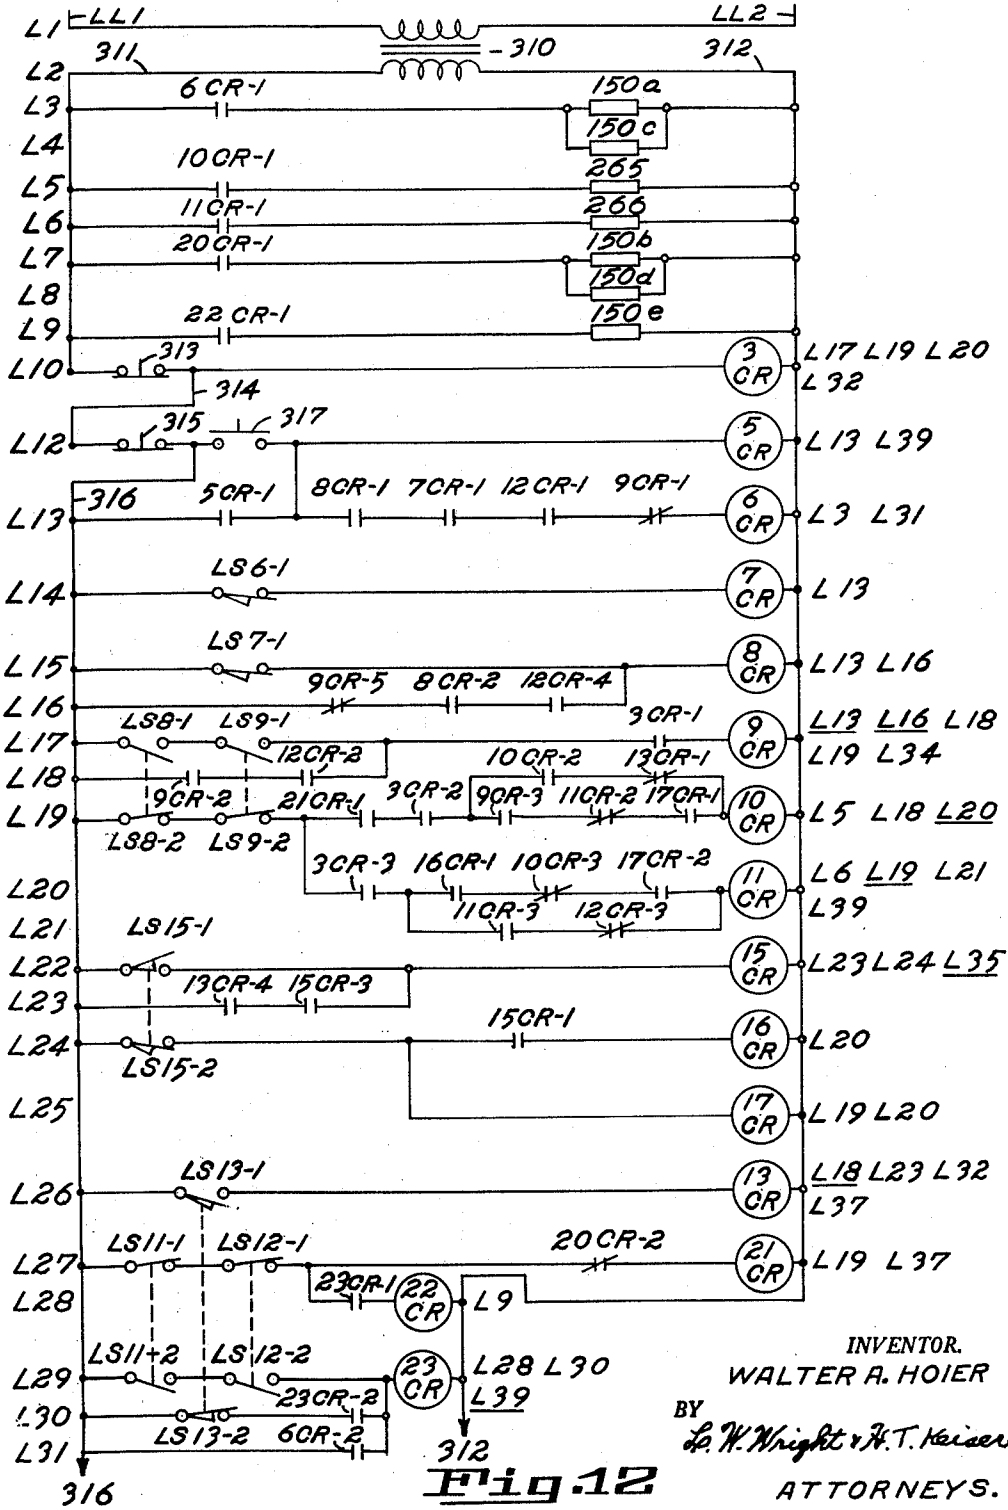 L1 LL1 LL2
310
L2 311 312
L3 6CR-1 150a
L4 150c
L5 10CR-1 265
L6 11CR-1 266
L7 20CR-1 150b
L8 150d
L9 22CR-1 150e
L10 313 3 CR L17 L19 L20
L32
314
L12 315 317 5 CR L13 L39
316
L13 5CR-1 8CR-1 7CR-1 12CR-1 9CR-1 6 CR L3 L31
L14 LS6-1 7 CR L13
L15 LS7-1 8 CR L13 L16
L16 9CR-5 8CR-2 12CR-4
L17 LS8-1 LS9-1 3CR-1 9 CR L13 L16 L18
L19 L34
L18 9CR-2 12CR-2 10CR-2 13CR-1
L19 LS8-2 LS9-2 21CR-1 3CR-2 9CR-3 11CR-2 17CR-1 10 CR L5 L18 L20
L20 3CR-3 16CR-1 10CR-3 17CR-2 11 CR L6 L19 L21
L39
L21 11CR-3 12CR-3
L22 LS15-1 15 CR L23 L24 L35
L23 13CR-4 15CR-3
L24 LS15-2 15CR-1 16 CR L20
L25 17 CR L19 L20
L26 LS13-1 13 CR L18 L23 L32
L37
L27 LS11-1 LS12-1 20CR-2 21 CR L19 L37
L28 23CR-1 22 CR L9
L29 LS11-2 LS12-2 23 CR L28 L30
L39
L30 LS13-2 23CR-2
L31 6CR-2
316
312
Fig.12
INVENTOR.
WALTER A. HOIER
BY
L. W. Wright & H. T. Keiser
ATTORNEYS.